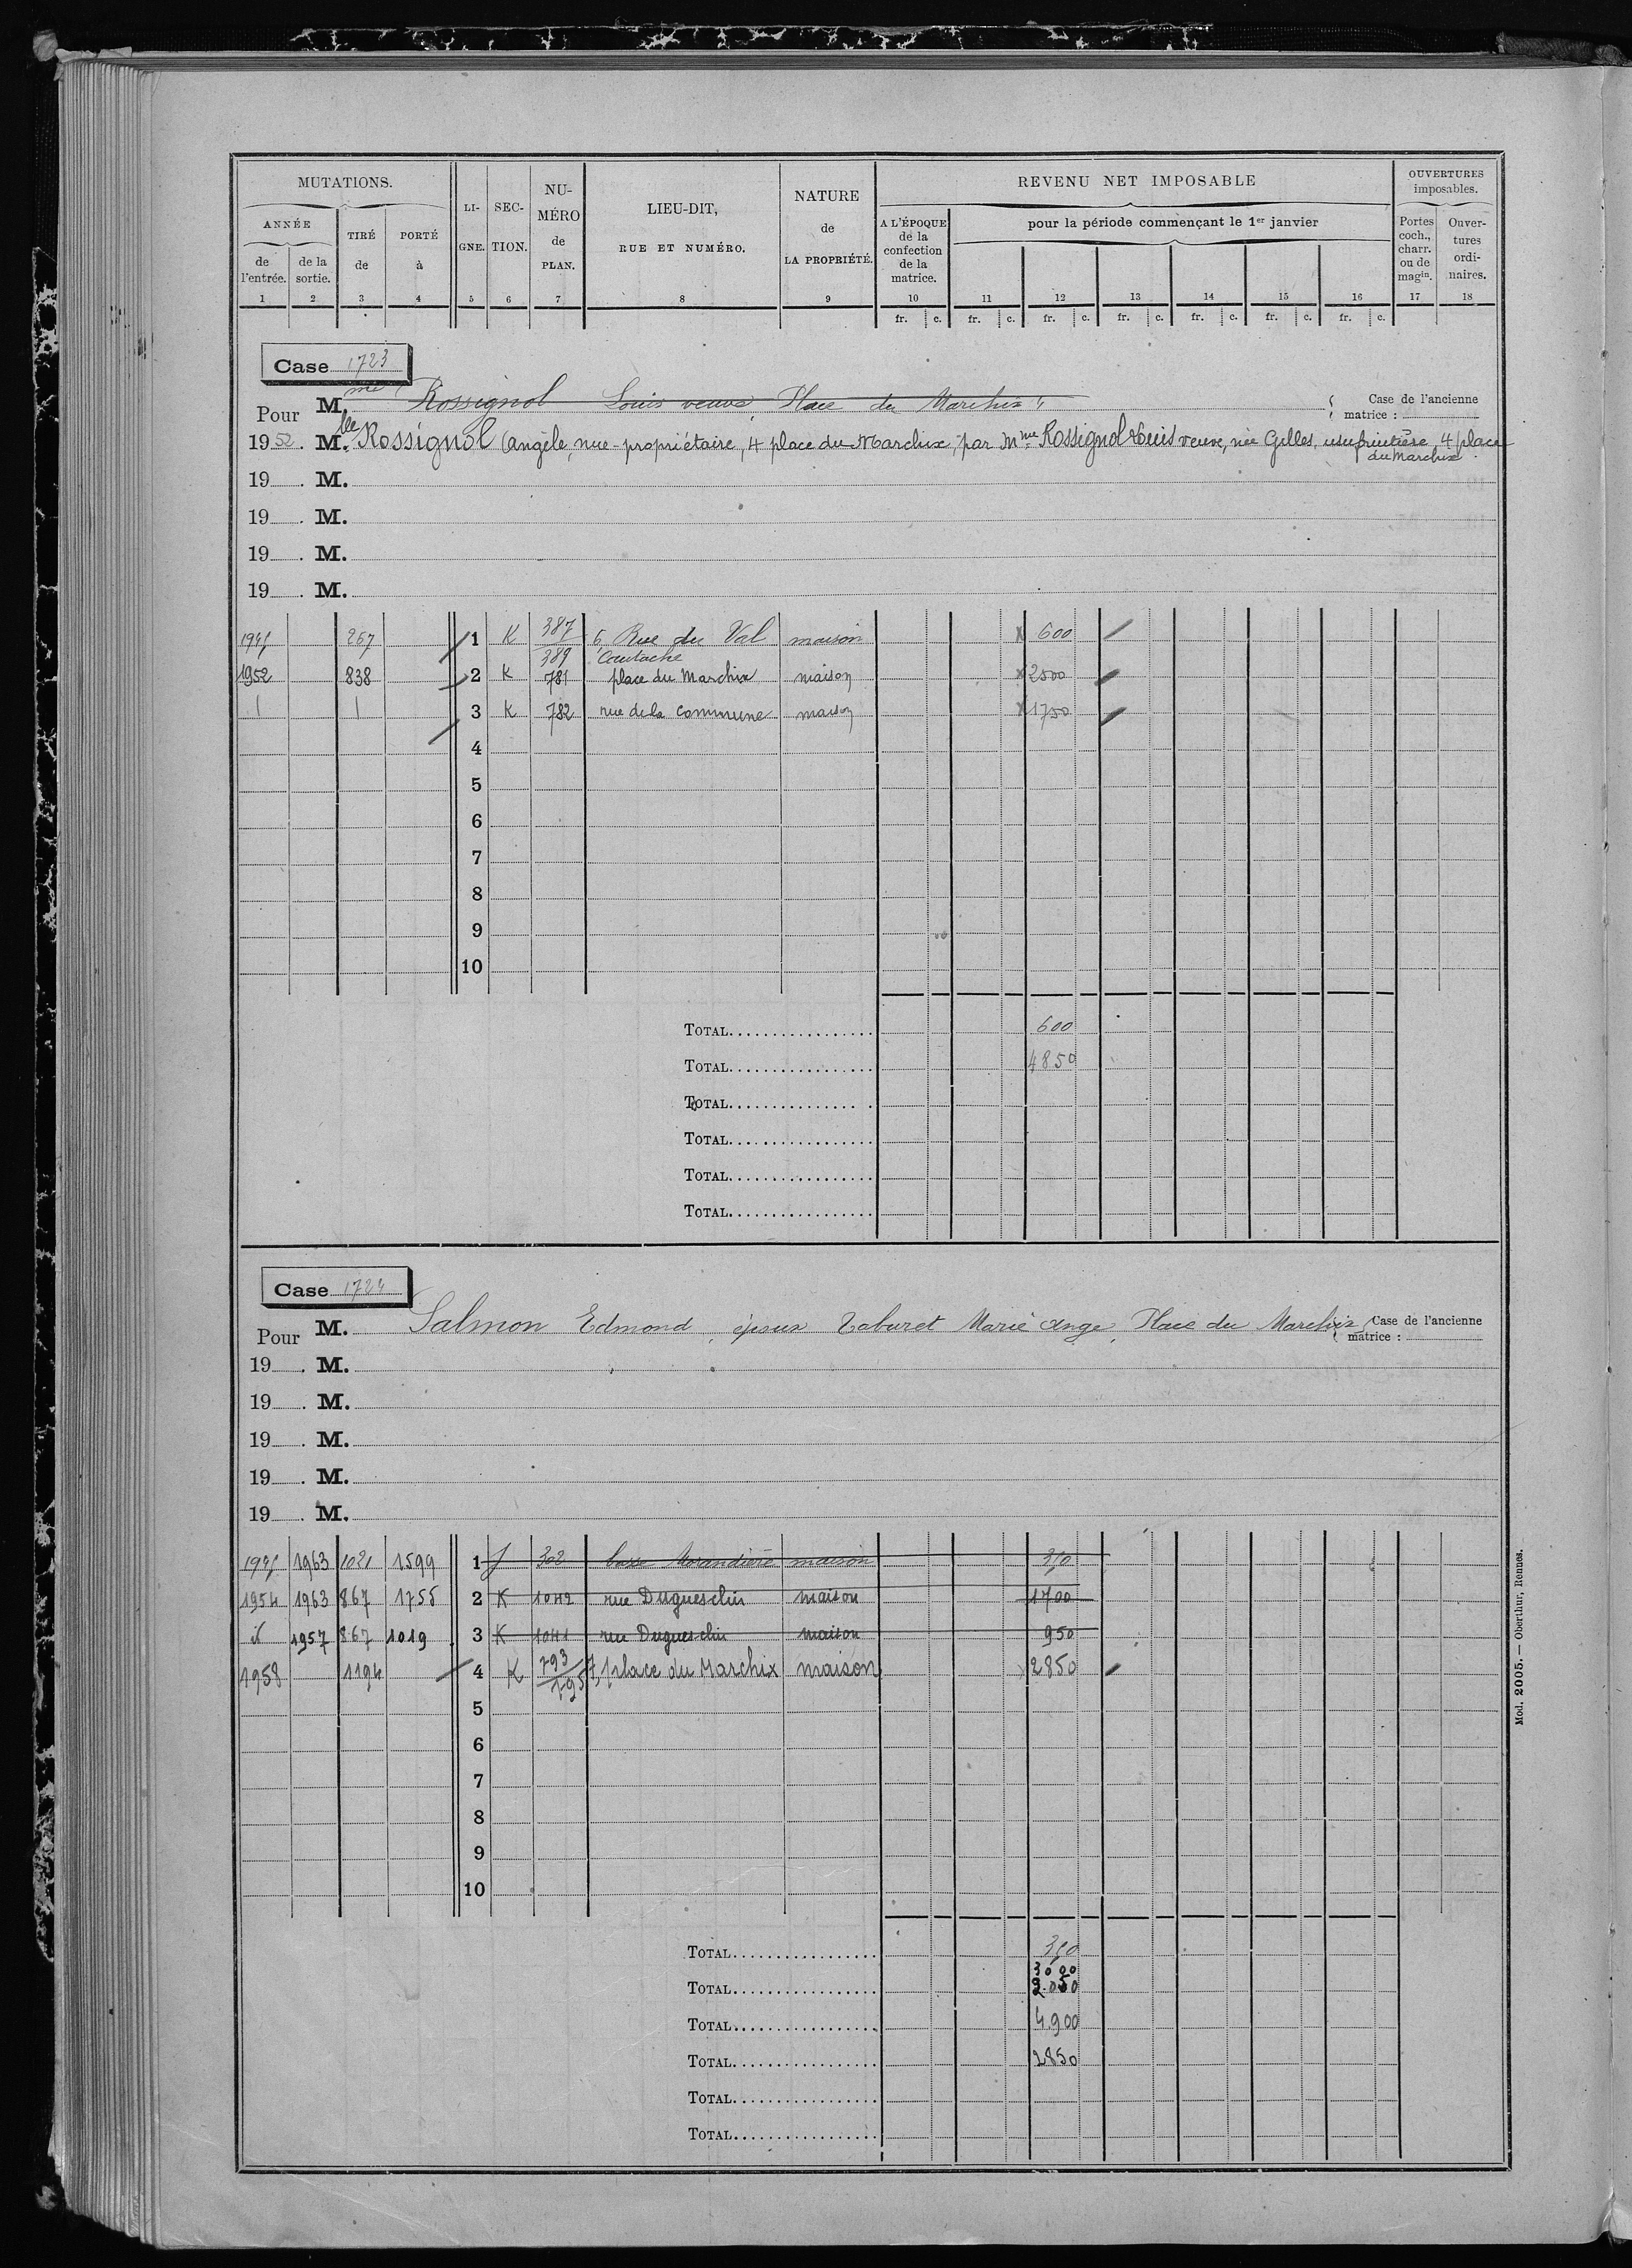 MUTATIONS.
ANNÉE
de l'entrée.
de la sortie.
TIRÉ de
PORTÉ à
LI-GNE.
SEC-TION.
NU-MÉRO de PLAN.
LIEU-DIT, RUE ET NUMÉRO.
NATURE de LA PROPRIÉTÉ.
REVENU NET IMPOSABLE
A L'ÉPOQUE de la confection de la matrice.
pour la période commençant le 1er janvier
OUVERTURES imposables.
Portes coch., charr. ou de magin.
Ouver-tures ordi-naires.
1 2 3 4 5 6 7 8 9 10 11 12 13 14 15 16 17 18
fr. c. fr. c. fr. c. fr. c. fr. c. fr. c. fr. c.
Case 1723
Pour M.me Rossignol Louis veuve, Place du Marchix 4
Case de l'ancienne matrice :
1952 M.lle Rossignol Angèle, nue-propriétaire, 4 place du Marchix, par Mme Rossignol Louis veuve, née Gelles, usufruitière, 4 place du Marchix
19 . M.
19 . M.
19 . M.
19 . M.
267 1 K 387 389 Rue du Val maison 600
1952 838 2 K 781 place du Marchix maison 2500
3 K 782 rue de la Commune maison 1750
4
5
6
7
8
9
10
TOTAL 600
TOTAL 4850
TOTAL
TOTAL
TOTAL
TOTAL
Case 1724
Pour M. Salmon Edmond, époux Taburet Marie Ange, Place du Marchix
Case de l'ancienne matrice :
19 . M.
19 . M.
19 . M.
19 . M.
19 . M.
1963 1021 1599 1 J 302 maison
1954 1963 867 1755 2 K 1042 rue Duguesclin maison 1700
1957 867 1019 3 K 1041 rue Duguesclin maison 950
1958 1194 4 K 793 795 7, place du Marchix maison 2850
5
6
7
8
9
10
TOTAL
3000
TOTAL 2.050
TOTAL 4.900
TOTAL 2850
TOTAL
TOTAL
Mod. 2005. — Oberthur, Rennes.